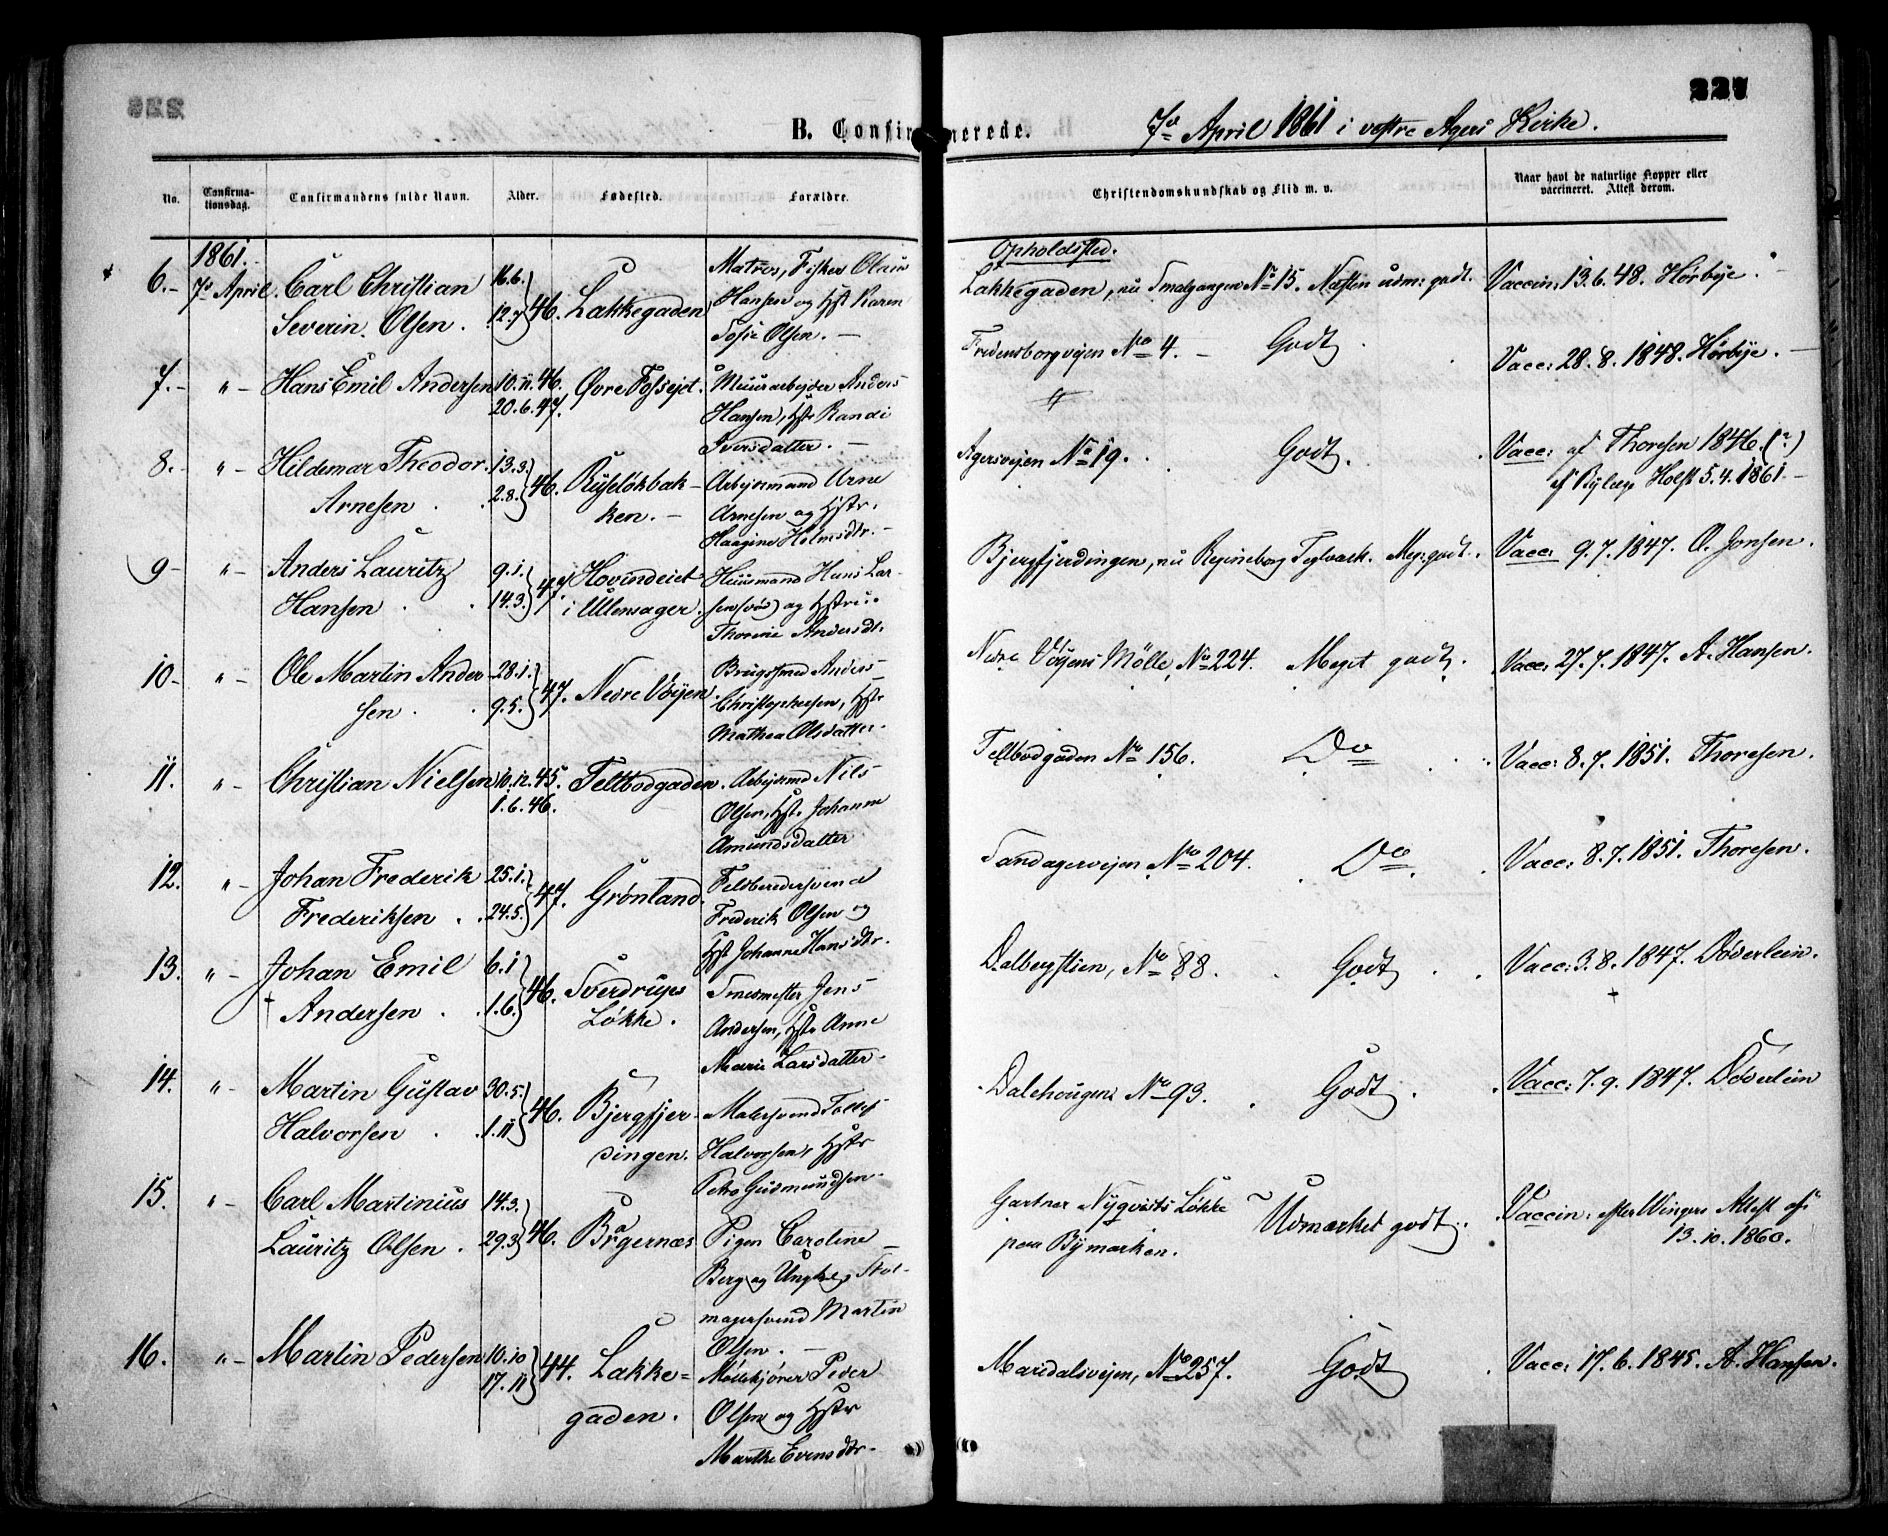 227
B. Confirmerede. 7de April 1861 i vestre Agers Kirke.
No. Confirmationsdag. Confirmandens fulde Navn. Alder. Fødested. Forældre. Christendomskundskab og Flid m. v. Naar havt de naturlige Kopper eller vaccineret. Attest derom.
1861. Opholdsted.
6. 7de April. Carl Christian 16.6. Matros, Fisker Olaus
Severin Olsen. 12.7 46. Lakkegaden Hansen og Hst Karen
Tofie Olsen. —
Lakkegaden, nu Smalgangen No 15. Næsten udm: godt. Vaccin: 13.6.48. Hørbye.
7. " Hans Emil Andersen 10.11.46. Øvre Fossejet. Muurarbejder Anders
20.6.47. Hansen, Hst Randi
Iversdatter. —
Fredensborgvejen No 4. — Godt Vacc: 28.8.1848. Hørbye. —
8. " Hildemar Theodor 13.3. Arbejdsmand Arne
Arnesen 2.8. 46. Ruseløkbakken. — Arnesen og Hstr.
Haagine Holmsdtr. —
Agersvejen No 19. Godt. Vacc: af Thoresen 1846. (?)
Holst 5.4.1861. —
9 " Anders Lauritz 9.1. Hovindeiet Huusmand Hans Lar-
Hansen 14.3. 47. i Ullensager. sen og Hstru
Thorine Andersdt.
Bjergfjerdingen, nu Regineborg Teglværk. Meg: godt. Vacc: 9.7.1847. O. Jonsen.
10 " Ole Martin Ander- 28.1. Brugssmed Anders
sen 9.5. 47. Nedre Vøijen. Christophersen, Hst
Mathea Olsdatter.
Nedre Vøyens Mølle, No 224. Meget godt. Vacc: 27.7.1847. A. Hansen.
11. " Christian Nielsen 10.12.45. Teltbodgaden. Arbejdsmd Nils
1.6.46. Olsen, Hst. Johanne
Amundsdatter
Teltbodgaden No 156. Do Vacc: 8.7.1851. Thoresen.
12. " Johan Frederik 25.1. Feldberedersvend
Frederiksen 24.5. 47. Grønland. Frederik Olsen og
Hst Johanne Hansdtr.
Sandagervejen No 204. Do. Vacc: 8.7.1851. Thoresen.
13. " Johan Emil 6.1 Sverdrups Smedmester Jens
Andersen 1.6. 46. Løkke. Andersen, Hst Anne
Marie Larsdatter
Dalbergstien, No 88. Godt Vacc: 3.8.1847. Døderlein.
14. " Martin Gustav 30.5. Bjergfjer- Malersvend Tollef
Halvorsen 1.11 46. dingen. Halvorsen, Hstr
Petra Gudmundsen
Dalehougen No 93. Godt. Vacc: 7.9.1847. Døderlein
15. " Carl Martinius 14.3. Pigen Caroline
Lauritz Olsen. 29.3 46. Bragernæs Berg og Ungkl. Stol-
magersvend Martin
Olsen. —
Gartner Nyqvists Løkke Udmærket godt. Vaccin: efter Wingers Attest af
paa Bymarken. 13.10.1860.
16. " Martin Pedersen 10.10 Lakke- Møllekjører Peder
17.11 44. gaden. Olsen og Hstr
Marthe Evensdtr.
Maridalsvejen, No 257. Godt Vacc: 17.6.1845. A. Hansen.